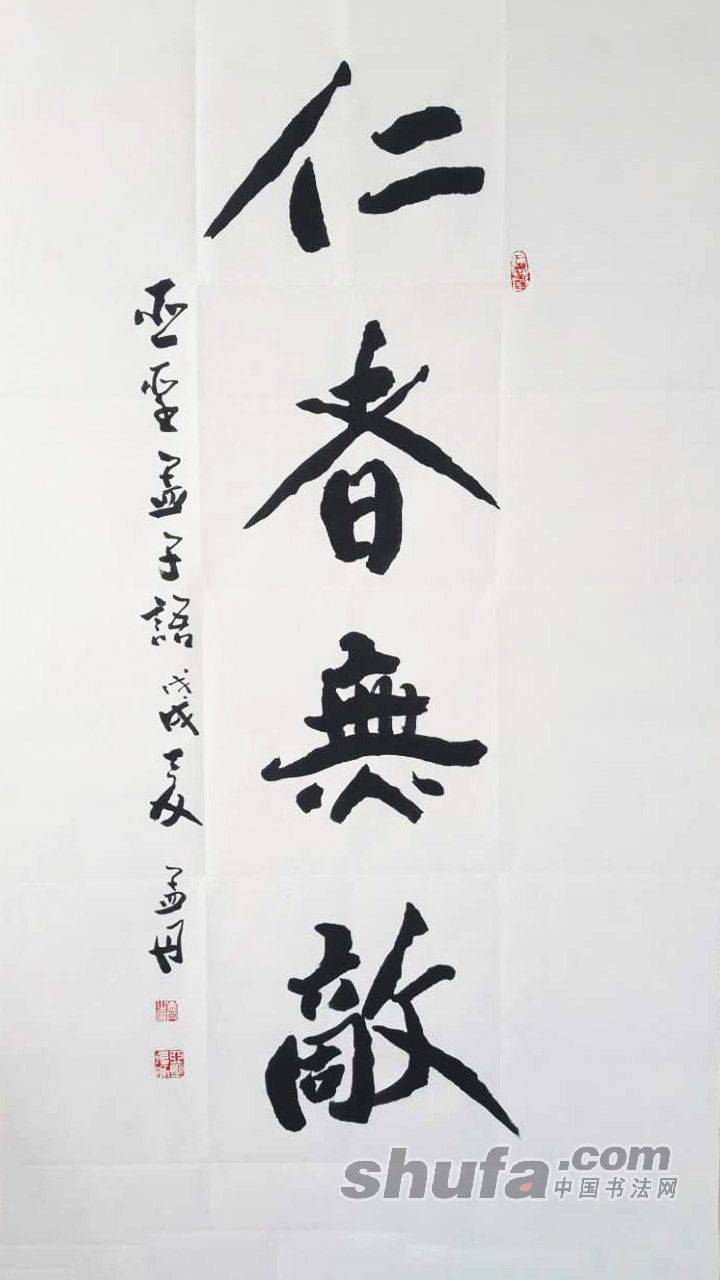 仁者無敵
亞聖孟子語 戊戌夏 孟丹
shufa.com
中国书法网